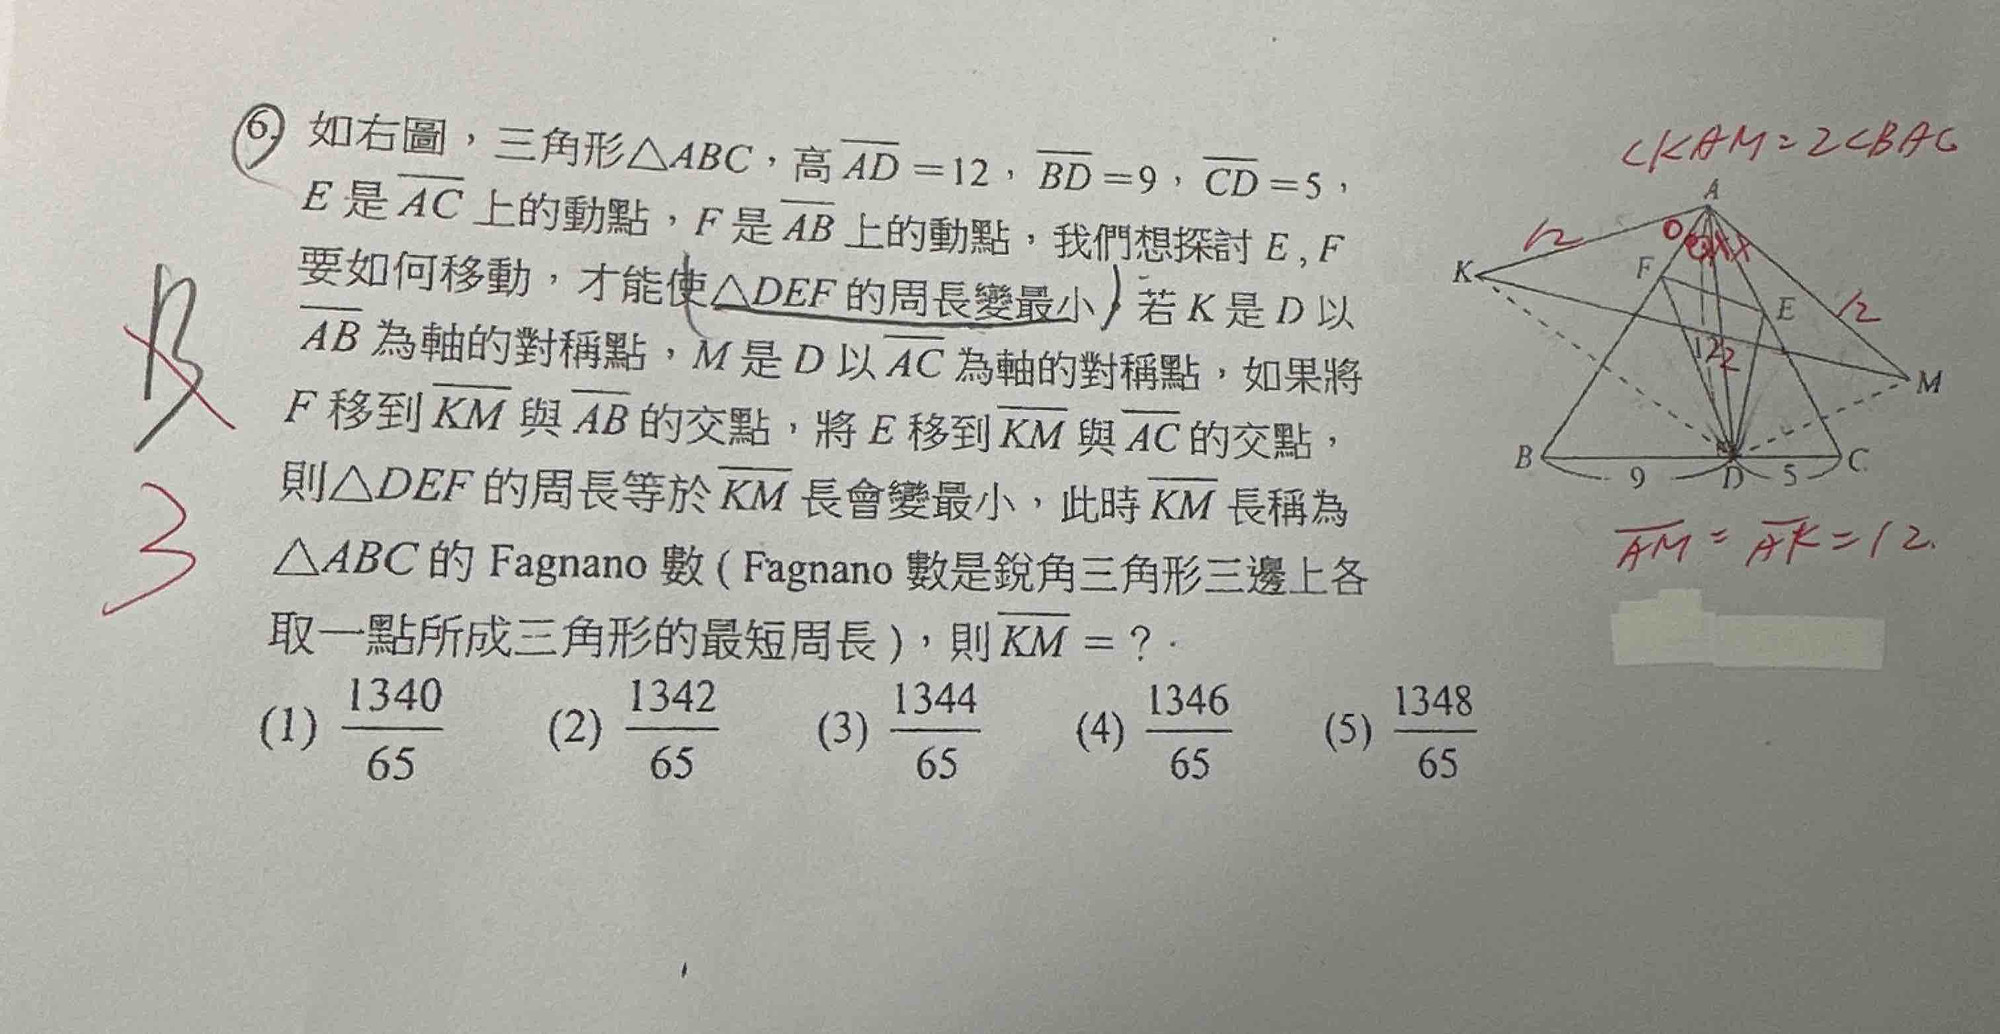 6. 如右圖，三角形△ABC，高AD=12，BD=9，CD=5，
E是AC上的動點，F是AB上的動點，我們想探討E,F
要如何移動，才能使△DEF的周長變最小，若K是D以
AB為軸的對稱點，M是D以AC為軸的對稱點，如果將
F移到KM與AB的交點，將E移到KM與AC的交點，
則△DEF的周長等於KM長會變最小，此時KM長稱為
△ABC的Fagnano數(Fagnano數是銳角三角形三邊上各
取一點所成三角形的最短周長)，則KM=？
(1) 1340/65 (2) 1342/65 (3) 1344/65 (4) 1346/65 (5) 1348/65
B
3
∠KAM=2∠BAC
A
12
K
F
E
12
12
M
B
9
D
5
C
AM=AK=12.